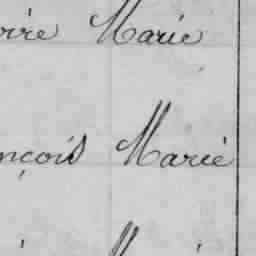 erre Marie
nçois Marie